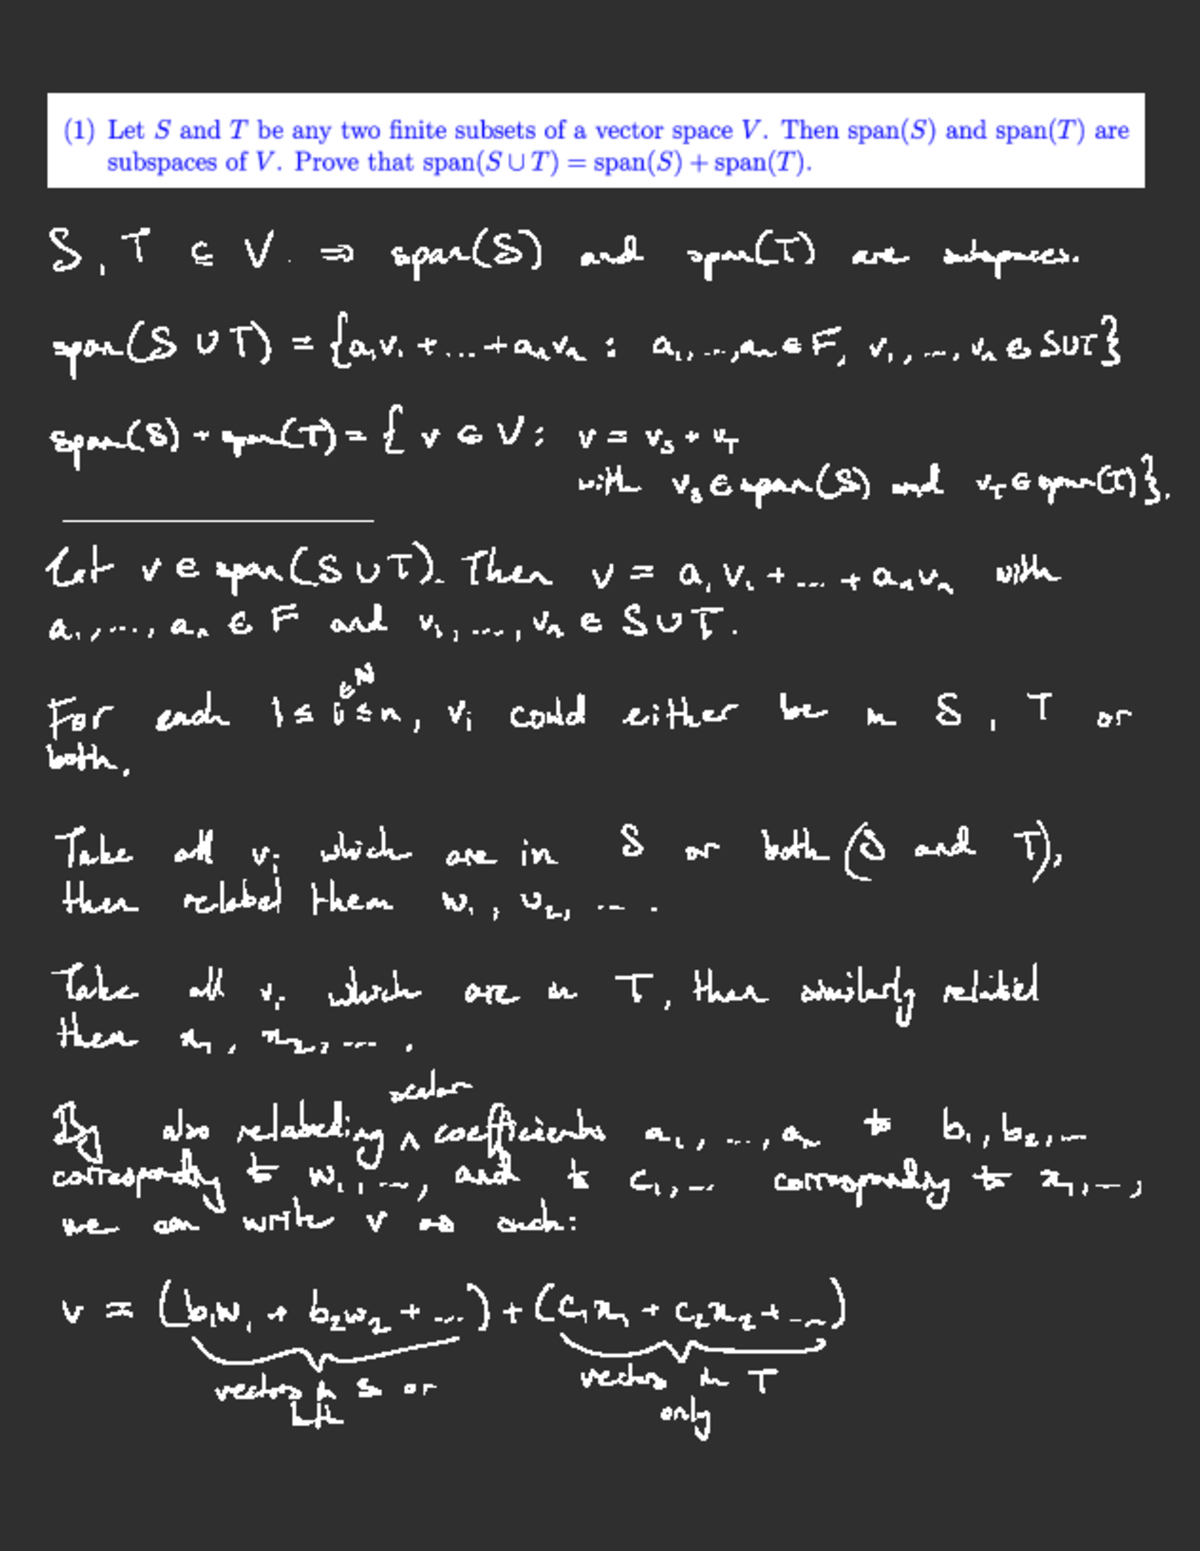 (1) Let S and T be any two finite subsets of a vector space V. Then span(S) and span(T) are
subspaces of V. Prove that span(S ∪ T) = span(S) + span(T).
S, T ⊆ V. ⇒ span(S) and span(T) are subspaces.
span(S ∪ T) = {a₁v₁ + ... + aₙvₙ : a₁, ..., aₙ ∈ F, v₁, ..., vₙ ∈ S∪T}
span(S) + span(T) = { v ∈ V : v = v_S + v_T
with v_S ∈ span(S) and v_T ∈ span(T)}.
Let v ∈ span(S ∪ T). Then v = a₁v₁ + ... + aₙvₙ with
a₁, ..., aₙ ∈ F and v₁, ..., vₙ ∈ S ∪ T.
∈ N
For each 1 ≤ i ≤ n, vᵢ could either be in S, T or
both.
Take all vᵢ which are in S or both (S and T),
then relabel them w₁, w₂, ... .
Take all vᵢ which are in T, then similarly relabel
them x₁, x₂, ... .
scalar
By also relabeling ^ coefficients a₁, ..., aₙ to b₁, b₂, ...
correspondly to w₁, ..., and to c₁, ... correspondly to x₁, ...,
we can write v as such:
v = (b₁w₁ + b₂w₂ + ...) + (c₁x₁ + c₂x₂ + ...)
vectors in S or vectors in T
both only